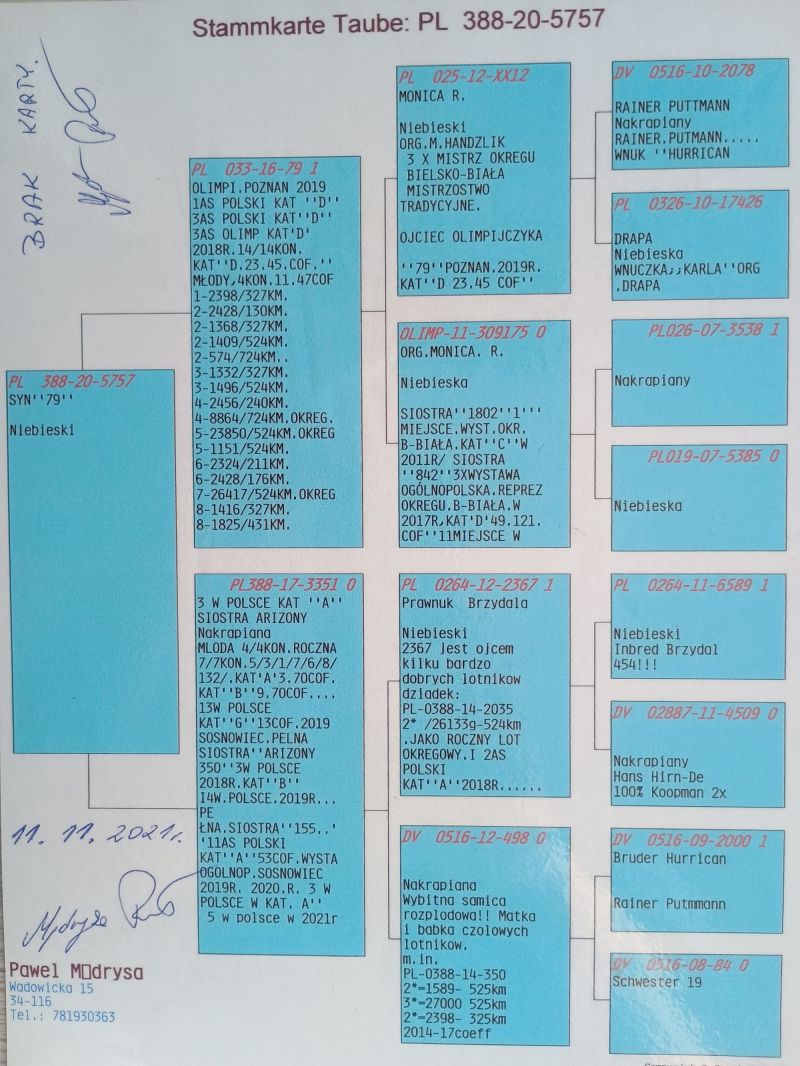 Stammkarte Taube: PL 388-20-5757
BRAK KARTY.
PL 388-20-5757
SYN''79''
Niebieski
PL 033-16-79 1
OLIMPI.POZNAN 2019
1AS POLSKI KAT ''D''
3AS POLSKI KAT''D''
3AS OLIMP KAT'D'
2018R.14/14KON.
KAT''D.23.45.COF.''
MŁODY,4KON.11.47COF
1-2398/327KM.
2-2428/130KM.
2-1368/327KM.
2-1409/524KM.
2-574/724KM..
3-1332/327KM.
3-1496/524KM.
4-2456/240KM.
4-8864/724KM.OKREG.
5-23850/524KM.OKREG
5-1151/524KM.
6-2324/211KM.
6-2428/176KM.
7-26417/524KM.OKREG
8-1416/327KM.
8-1825/431KM.
PL388-17-3351 0
3 W POLSCE KAT ''A''
SIOSTRA ARIZONY
Nakrapiana
MLODA 4/4KON.ROCZNA
7/7KON.5/3/1/7/6/8/
132/.KAT'A'3.70COF.
KAT''B''9.70COF....
13W POLSCE
KAT''G''13COF.2019
SOSNOWIEC.PELNA
SIOSTRA''ARIZONY
350''3W POLSCE
2018R.KAT''B''
I4W.POLSCE.2019R...
PE
ŁNA.SIOSTRA''155..'
'11AS POLSKI
KAT''A''53COF.WYSTA
OGOLNOP.SOSNOWIEC
2019R. 2020.R. 3 W
POLSCE W KAT. A''
5 w polsce w 2021r
PL 025-12-XX12
MONICA R.
Niebieski
ORG.M.HANDZLIK
3 X MISTRZ OKREGU
BIELSKO-BIAŁA
MISTRZOSTWO
TRADYCYJNE.
OJCIEC OLIMPIJCZYKA
''79''POZNAN.2019R.
KAT''D 23,45 COF''
OLIMP-11-309175 0
ORG.MONICA. R.
Niebieska
SIOSTRA''1802''1'''
MIEJSCE.WYST.OKR.
B-BIAŁA.KAT''C''W
2011R/ SIOSTRA
''842''3XWYSTAWA
OGÓLNOPOLSKA.REPREZ
OKREGU.B-BIAŁA.W
2017R,KAT'D'49.121.
COF''11MIEJSCE W
PL 0264-12-2367 1
Prawnuk Brzydala
Niebieski
2367 jest ojcem
kilku bardzo
dobrych lotnikow
dziadek:
PL-0388-14-2035
2* /26133g-524km
.JAKO ROCZNY LOT
OKREGOWY.I 2AS
POLSKI
KAT''A''2018R......
DV 0516-12-498 0
Nakrapiana
Wybitna samica
rozplodowa!! Matka
i babka czolowych
lotnikow.
m.in.
PL-0388-14-350
2*=1589- 525km
3*=27000 525km
2*=2398- 325km
2014-17coeff
DV 0516-10-2078
RAINER PUTTMANN
Nakrapiany
RAINER.PUTMANN.....
WNUK ''HURRICAN
PL 0326-10-17426
DRAPA
Niebieska
WNUCZKA,,KARLA''ORG
.DRAPA
PL026-07-3538 1
Nakrapiany
PL019-07-5385 0
Niebieska
PL 0264-11-6589 1
Niebieski
Inbred Brzydal
454!!!
DV 02887-11-4509 0
Nakrapiany
Hans Hirn-De
100% Koopman 2x
DV 0516-09-2000 1
Bruder Hurrican
Rainer Putmmann
DV 0516-08-84 0
Schwester 19
11.11.2021r.
Pawel M□drysa
Wadowicka 15
34-116
Tel.: 781930363